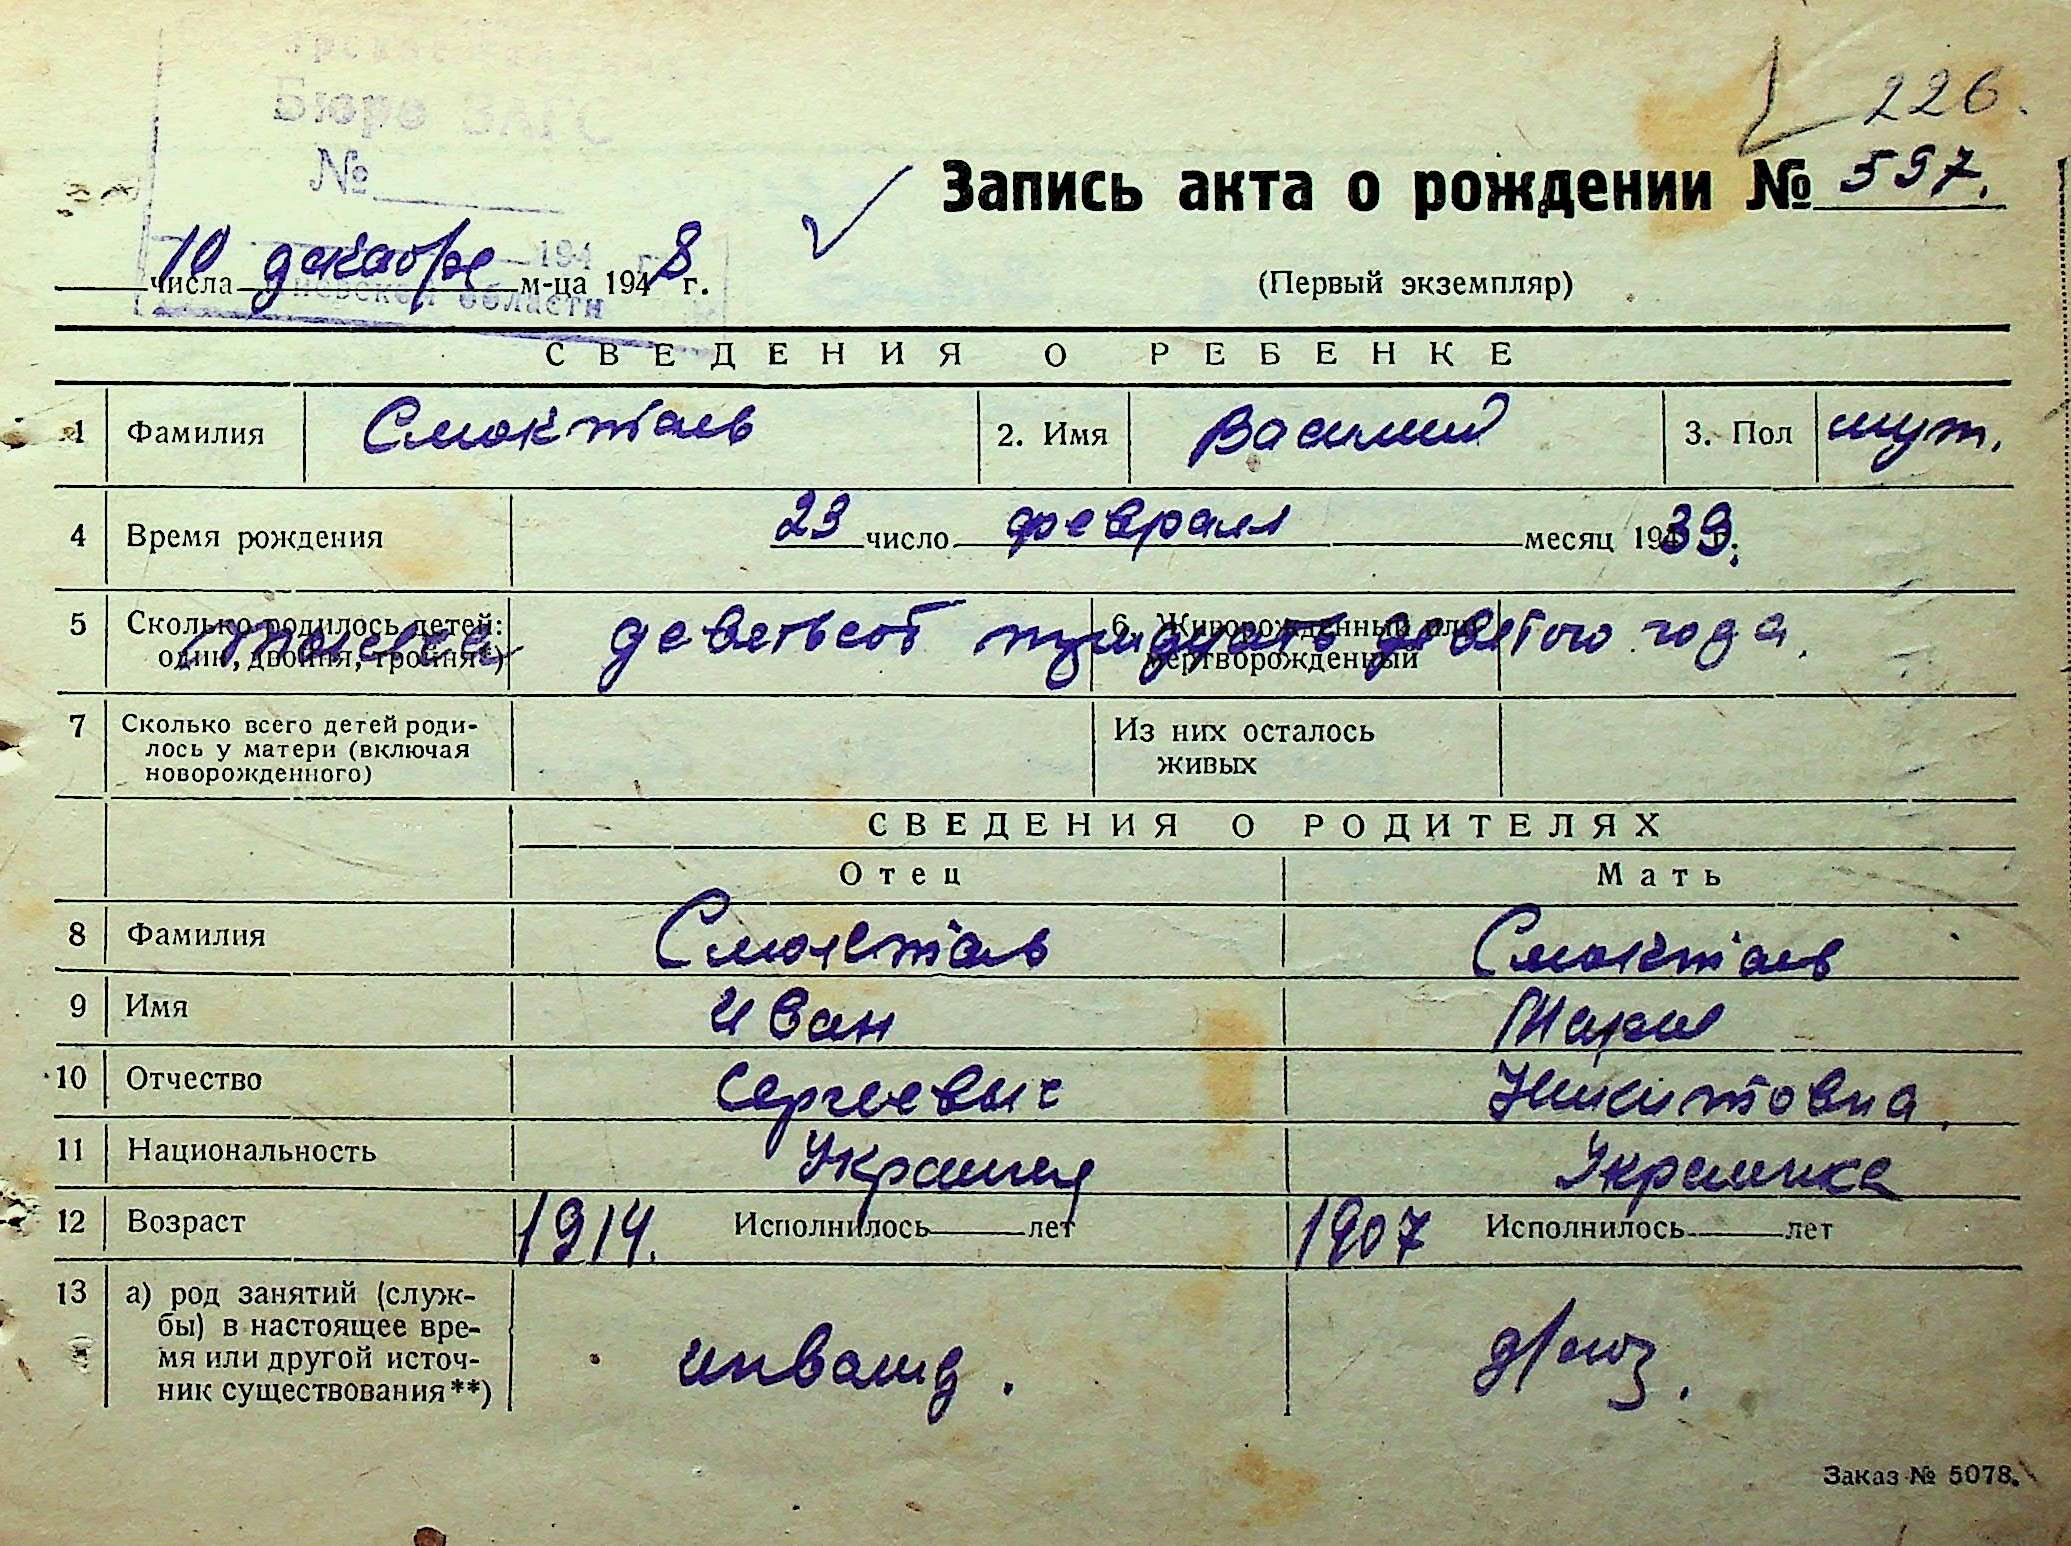 226.
Бюро ЗАГС
№
Запись акта о рождении № 597.
10 числа декабря м-ца 1948 г.
(Первый экземпляр)
области
СВЕДЕНИЯ О РЕБЕНКЕ
1 Фамилия Смокталь 2. Имя Василий 3. Пол муж.
4 Время рождения 23 число февраля месяц 1939.
5 Сколько родилось детей: один, двойня, тройня*) 6. Живорожденный или мертворожденный
тысяча девятьсот тридцать девятого года.
7 Сколько всего детей роди-
лось у матери (включая
новорожденного)
Из них осталось
живых
СВЕДЕНИЯ О РОДИТЕЛЯХ
Отец Мать
8 Фамилия Смокталь Смокталь
9 Имя Иван Мария
10 Отчество Сергеевич Никитовна
11 Национальность Украинец Украинка
12 Возраст 1914. Исполнилось лет 1907 Исполнилось лет
13 а) род занятий (служ-
бы) в настоящее вре-
мя или другой источ-
ник существования**)
инвалид. д/хоз.
Заказ № 5078.